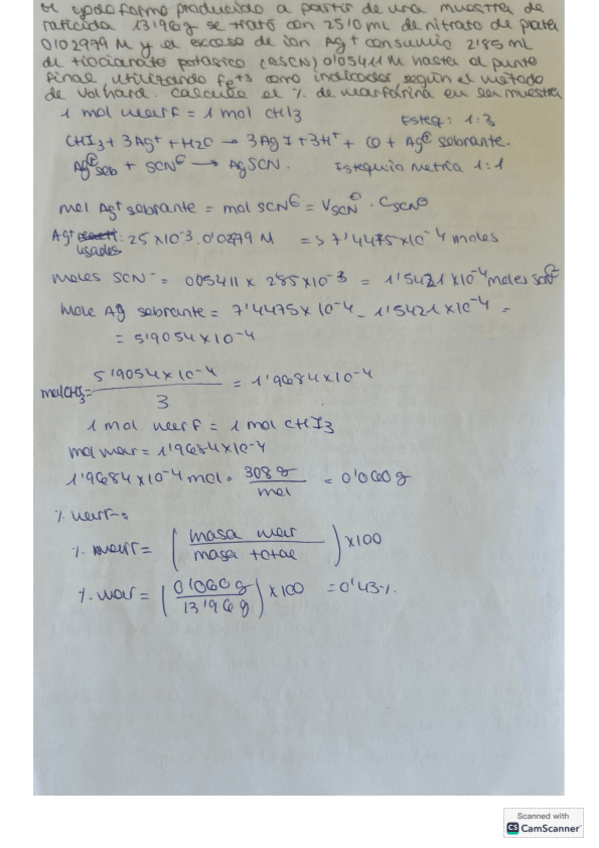 El yodoformo producido a partir de una muestra de
raticida 13'96g se trató con 25'10 mL de nitrato de plata
0'02979 M y el exceso de ion Ag+ consumió 2'85 mL
de tiocianato potásico (KSCN) 0'05411M hasta el punto
final, utilizando Fe+3 como indicador según el método
de Volhard. Calcula el % de warfarina en la muestra
1 mol warf = 1 mol CHI3
Esteq: 1:3
CHI3 + 3Ag+ + H2O → 3AgI + 3H+ + CO + Ag⊕ sobrante.
Ag⊕sob + SCN⊖ → AgSCN. Estequiometria 1:1
mol Ag+ sobrante = mol SCN⊖ = VSCN⊖ · CSCN⊖
Ag+ usados: 25x10-3 · 0'0279 M => 7'4475x10-4 moles
moles SCN- = 005411 x 2'85x10-3 = 1'5421 x10-4 moles SCN⊖
Mole Ag sobrante = 7'4475x10-4 - 1'5421x10-4 =
= 5'9054x10-4
mol CHI3 = 5'9054x10-4 / 3 = 1'9684x10-4
1 mol warf = 1 mol CHI3
mol war = 1'9684x10-4
1'9684x10-4 mol · 308 g / mol = 0'060g
% warf=:
% warf = (masa war / masa total) x100
% war = (0'060g / 13'96g) x100 = 0'43%
Scanned with
CS CamScanner